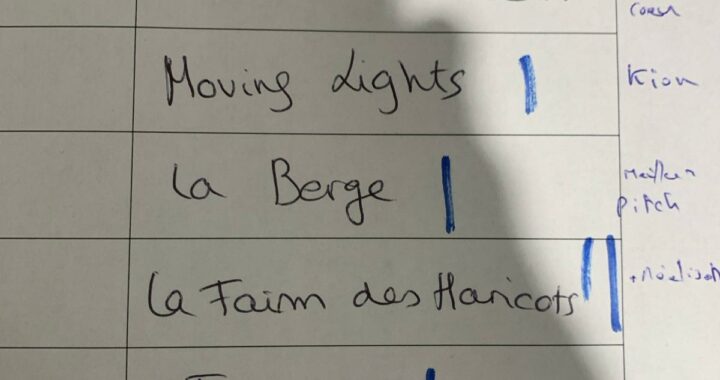 Coach
Moving Lights
Kion
La Berge
Meilleur
pitch
La Faim des Haricots